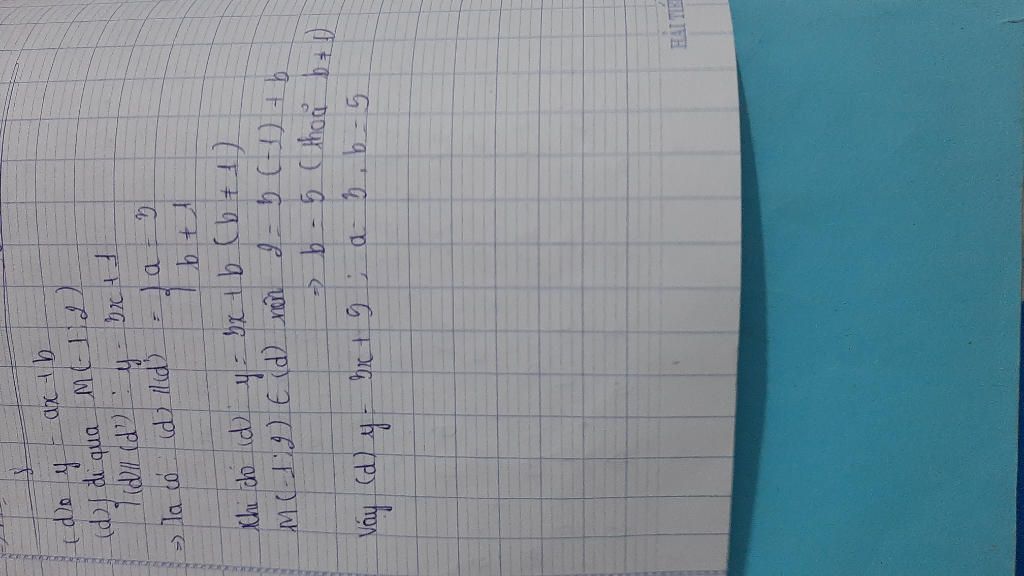 (d): y = ax + b
(d) { đi qua M(-1; 2)
{ (d) // (d'): y = 3x + 1
=> Ta có (d) // (d') = { a = 3
{ b ≠ 1
Khi đó (d): y = 3x + b (b ≠ 1)
M(-1; 2) ∈ (d) nên 2 = 3(-1) + b
=> b = 5 (thoả b ≠ 1)
Vậy (d) y = 3x + 5; a = 3, b = 5
HẢI TIẾN